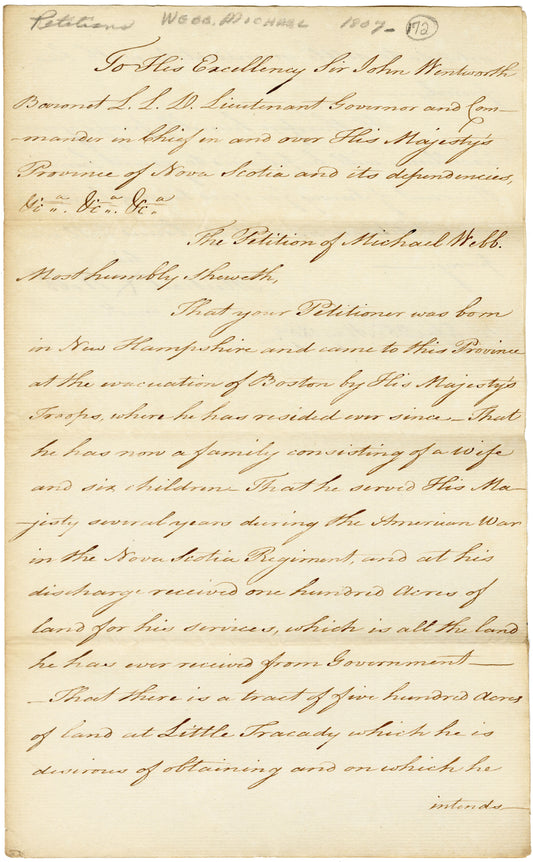 Petitions WEBB, MICHAEL 1807- 172
To His Excellency Sir John Wentworth
Baronet L. L. D. Lieutenant Governor and Com-
-mander in Chief in and over His Majesty's
Province of Nova Scotia and its dependencies,
&c.a &c.a &c.a
The Petition of Michael Webb.
Most humbly Sheweth,
That your Petitioner was born
in New Hampshire and came to this Province
at the evacuation of Boston by His Majesty's
Troops, where he has resided ever since - That
he has now a family consisting of a Wife
and six children That he served His Ma-
-jesty several years during the American War
in the Nova Scotia Regiment, and at his
discharge received one hundred Acres of
land for his services, which is all the land
he has ever received from Government —
- That there is a tract of five hundred Acres
of land at Little Tracady which he is
desirous of obtaining and on which he
intends —